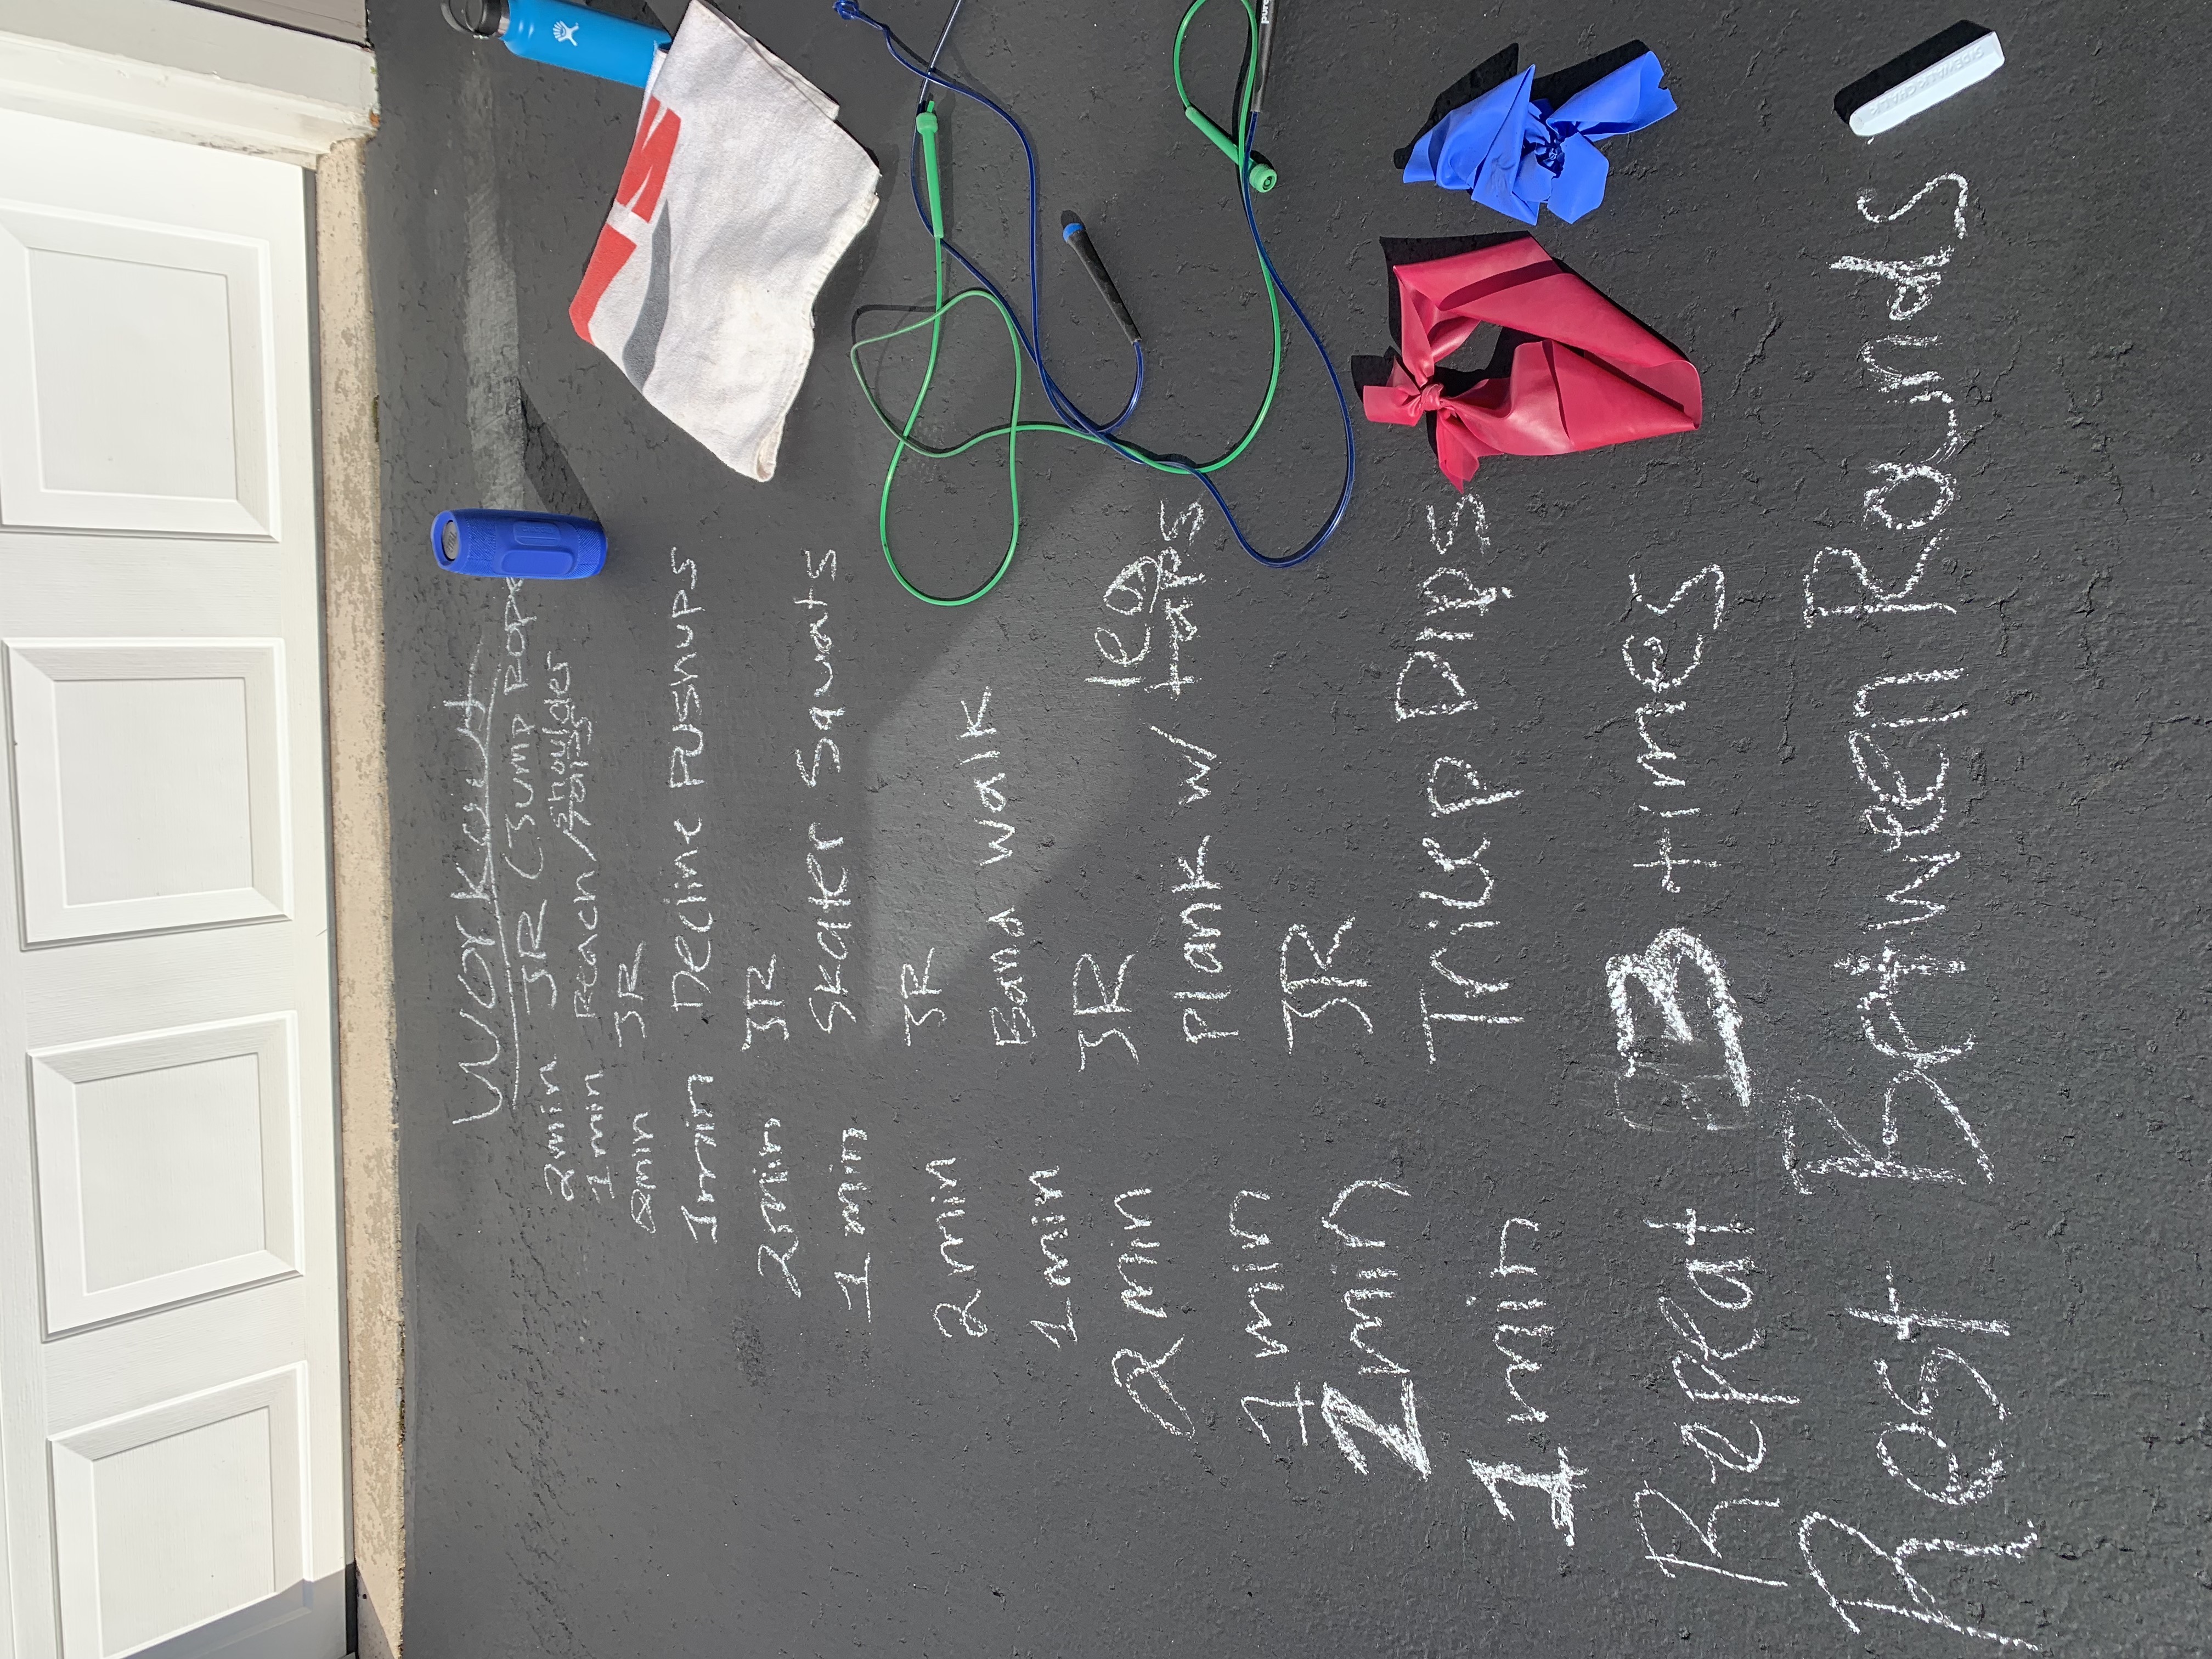 Workout
2min JR (Jump Rope
1min Reach / Shoulder
2min JR
1min Decline Pushups
2min JR
1 min Skater Squats
2min JR
1min Band walk
2 min JR
1 min Plank w/ leg taps
2min JR
1min Tricep Dips
Repeat 3 times
Rest Between Rounds